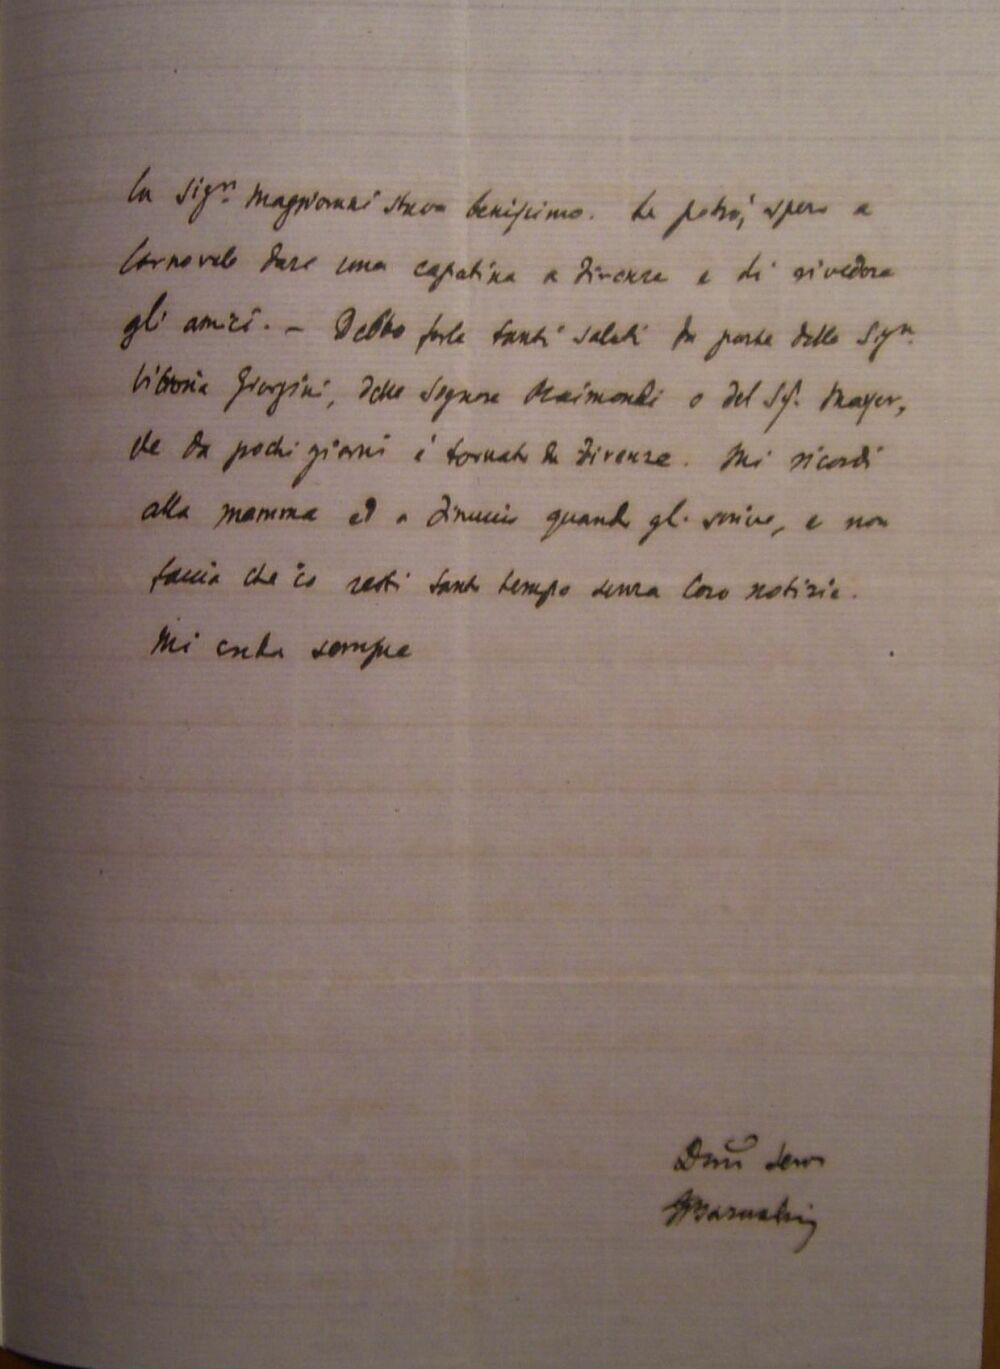 la Sigra Maggioranni stava benissimo. Se potrò, spero a
Carnovale dare una capatina a Firenze e di rivedere
gli amici. — Debbo farle tanti saluti da parte della Sigra
Vittoria Giorgini, delle Signore Raimondi e del Sig. Mayer,
che da pochi giorni è tornato da Firenze. Mi ricordi
alla mamma ed a quando gli scrive, e non
faccia che io resti tanto tempo senza loro notizie.
Mi creda sempre